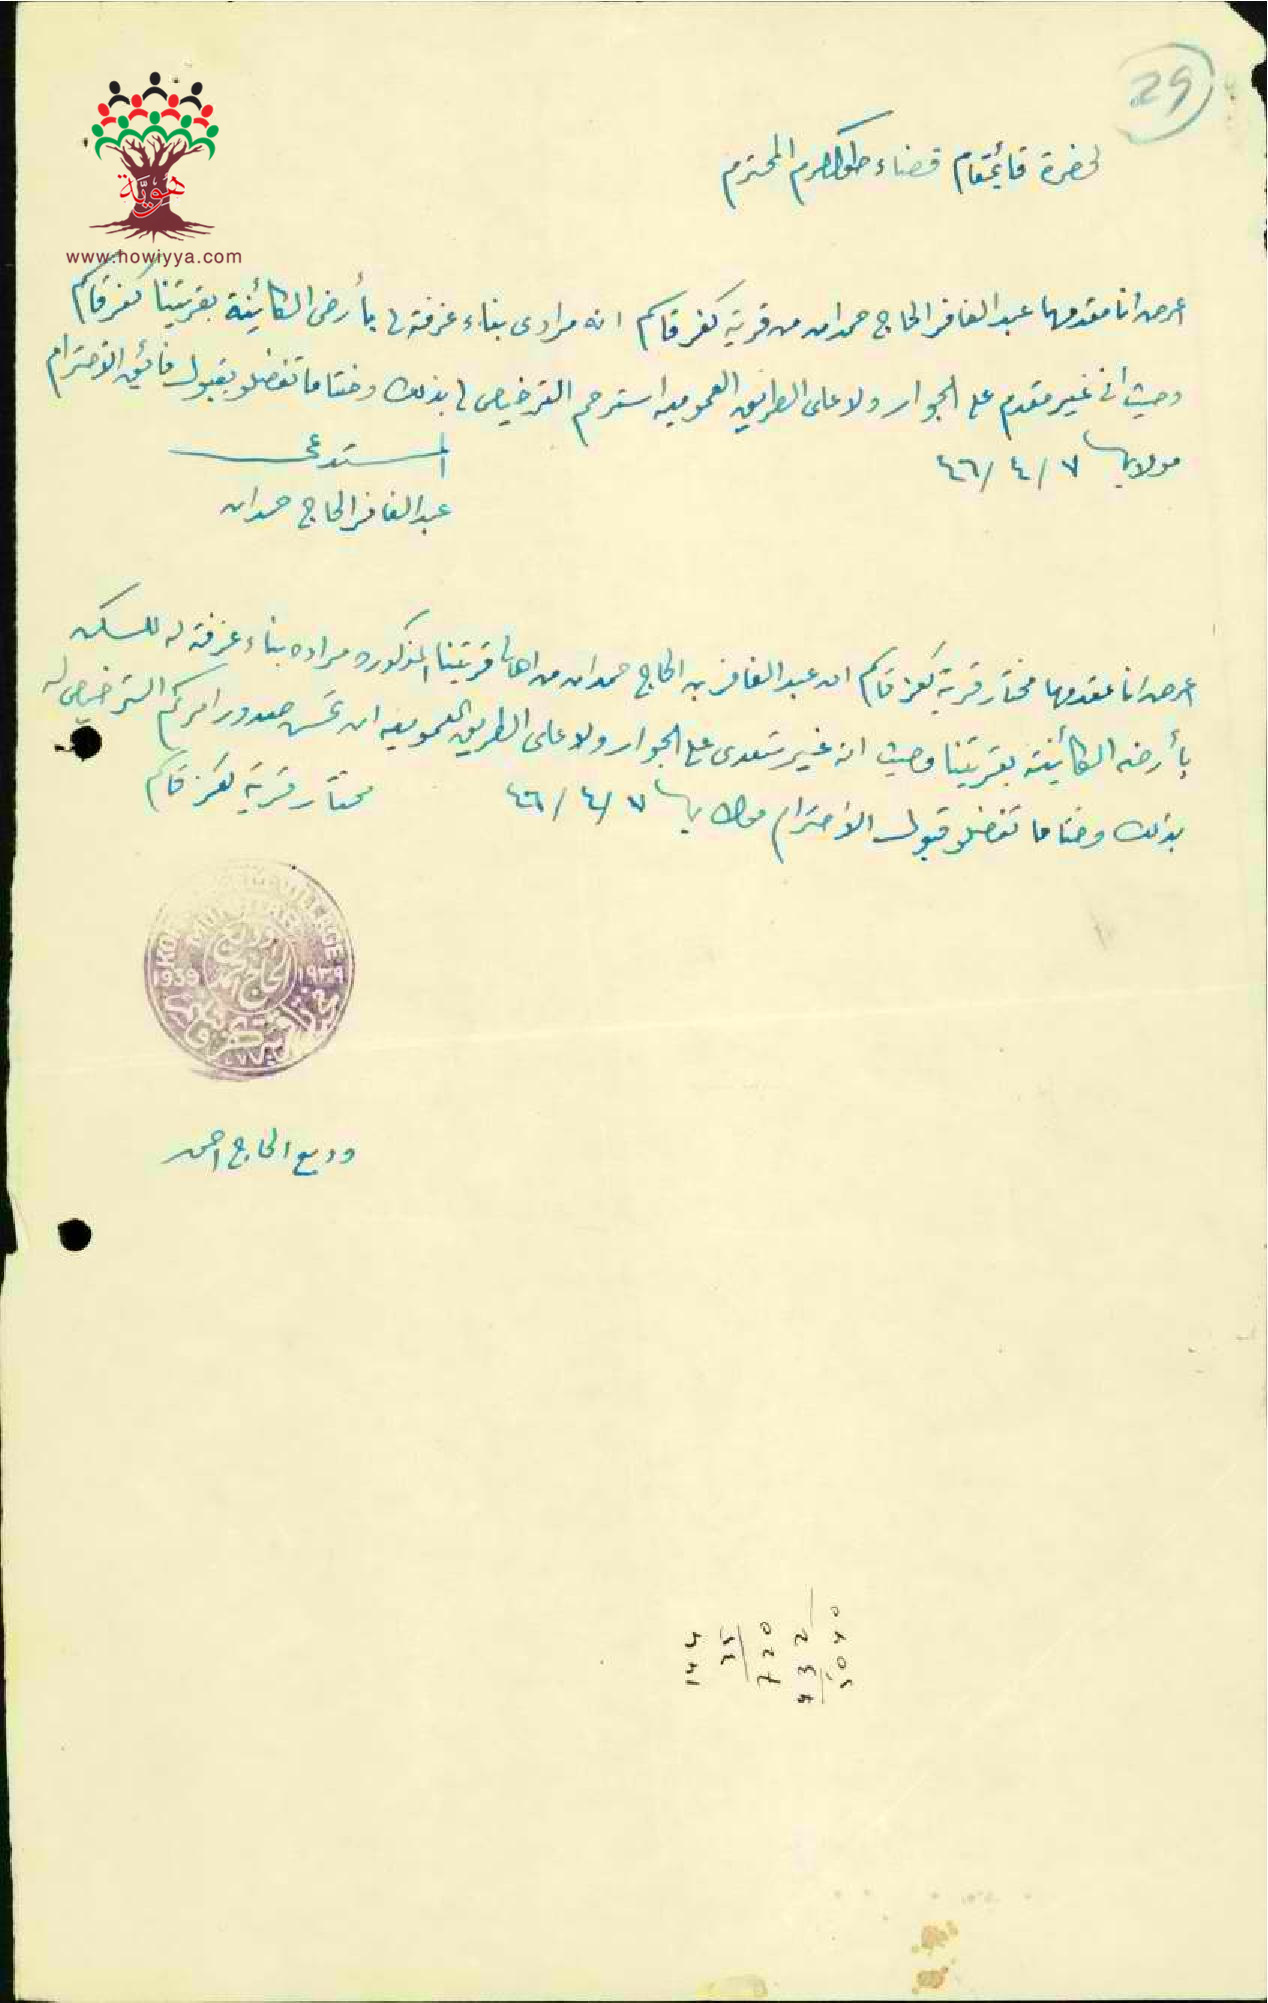 29
لحضرة قائمقام قضاء طولكرم المحترم
هوية
www.howiyya.com
اعرض انا مقدمها عبد الغافر الحاج حمدان من قرية كفرقاسم انه مرادى بناء غرفة لى بأرضى الكائنة بقريتنا كفرقاسم
وحيث انى غير مقدم على الجوار ولا على الطريق العموميه استرحم الترخيص لى بذلك وختاما تفضلو بقبول فائق الاحترام
مولاى ٧ / ٤ / ٤٦
المستدعى
عبد الغافر الحاج حمدان
اعرض انا مقدمها مختار قرية كفرقاسم ان عبد الغافر بن الحاج حمدان من اهالى قريتنا المذكوره مراده بناء غرفة له للسكن
بأرضه الكائنة بقريتنا وحيث انه غير متعدى على الجوار ولا على الطريق العموميه ان تحسن صدور امركم الترخيص له
بذلك وختاما تفضلو قبول الاحترام ٧ / ٤ / ٤٦
مختار قرية كفرقاسم
VILLEGE
MUKHTAR
وديع
الحاج احمد
1939 ١٩٣٩
مختار
وديع الحاج احمد
144
35
720
432
5040